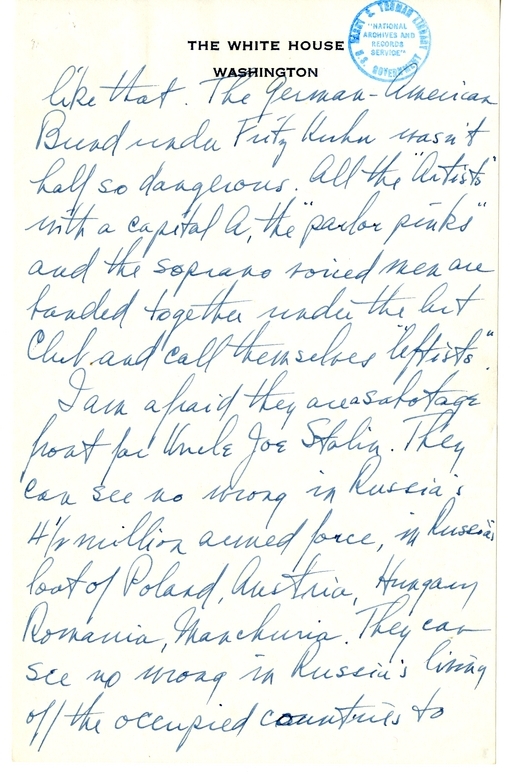 THE WHITE HOUSE
WASHINGTON
HARRY S. TRUMAN LIBRARY
"NATIONAL
ARCHIVES AND
RECORDS
SERVICE"
U.S. GOVERNMENT
like that. The German-American
Bund under Fritz Kuhn wasn't
half so dangerous. All the "Artists"
with a capital A, the "parlor pinks"
and the soprano voiced men are
banded together under the
Club and call themselves "leftists."
I am afraid they are a sabotage
front for Uncle Joe Stalin. They
can see no wrong in Russia's
4½ million armed force, in Russia's
loot of Poland, Austria, Hungary
Romania, Manchuria. They can
see no wrong in Russia's living
off the occupied countries to